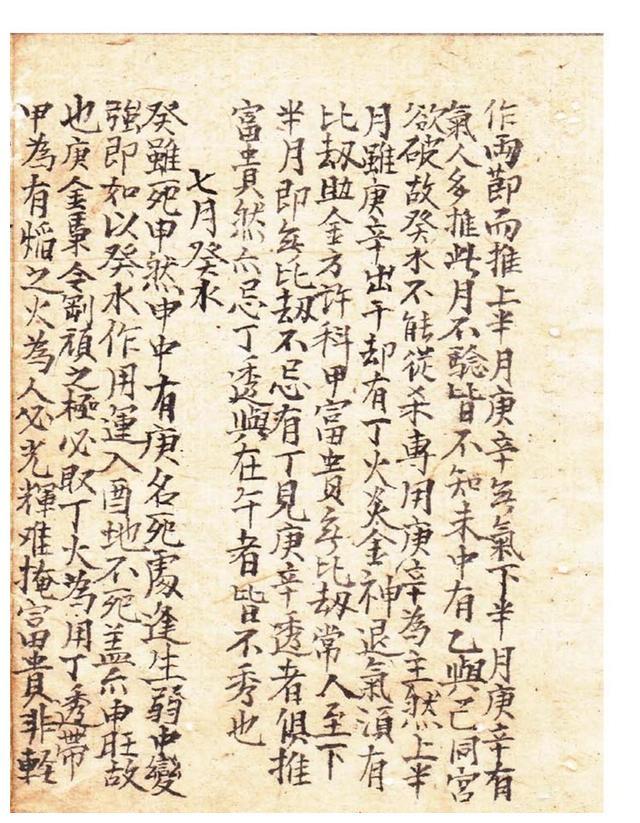 作両節而推上半月庚辛無氣下半月庚辛有
氣人多推此月不驗皆不知未中有乙與己同宮
欲破故癸水不能從杀專用庚辛為主然上半
月雖庚辛出干却有丁火炎金神退氣湏有
比刼助金方許科甲富貴無比刼常人至下
半月即無比刼不忌有丁見庚辛透者俱推
富貴然亦忌丁透與在午者皆不秀也
七月癸水
癸雖死申然申中有庚名死處逢生弱中變
強即如以癸水作用運入酉地不死盖亦申旺故
也庚金秉令剛頑之極必取丁火為用丁透帶
甲為有焰之火為人必光輝难掩富貴非輕